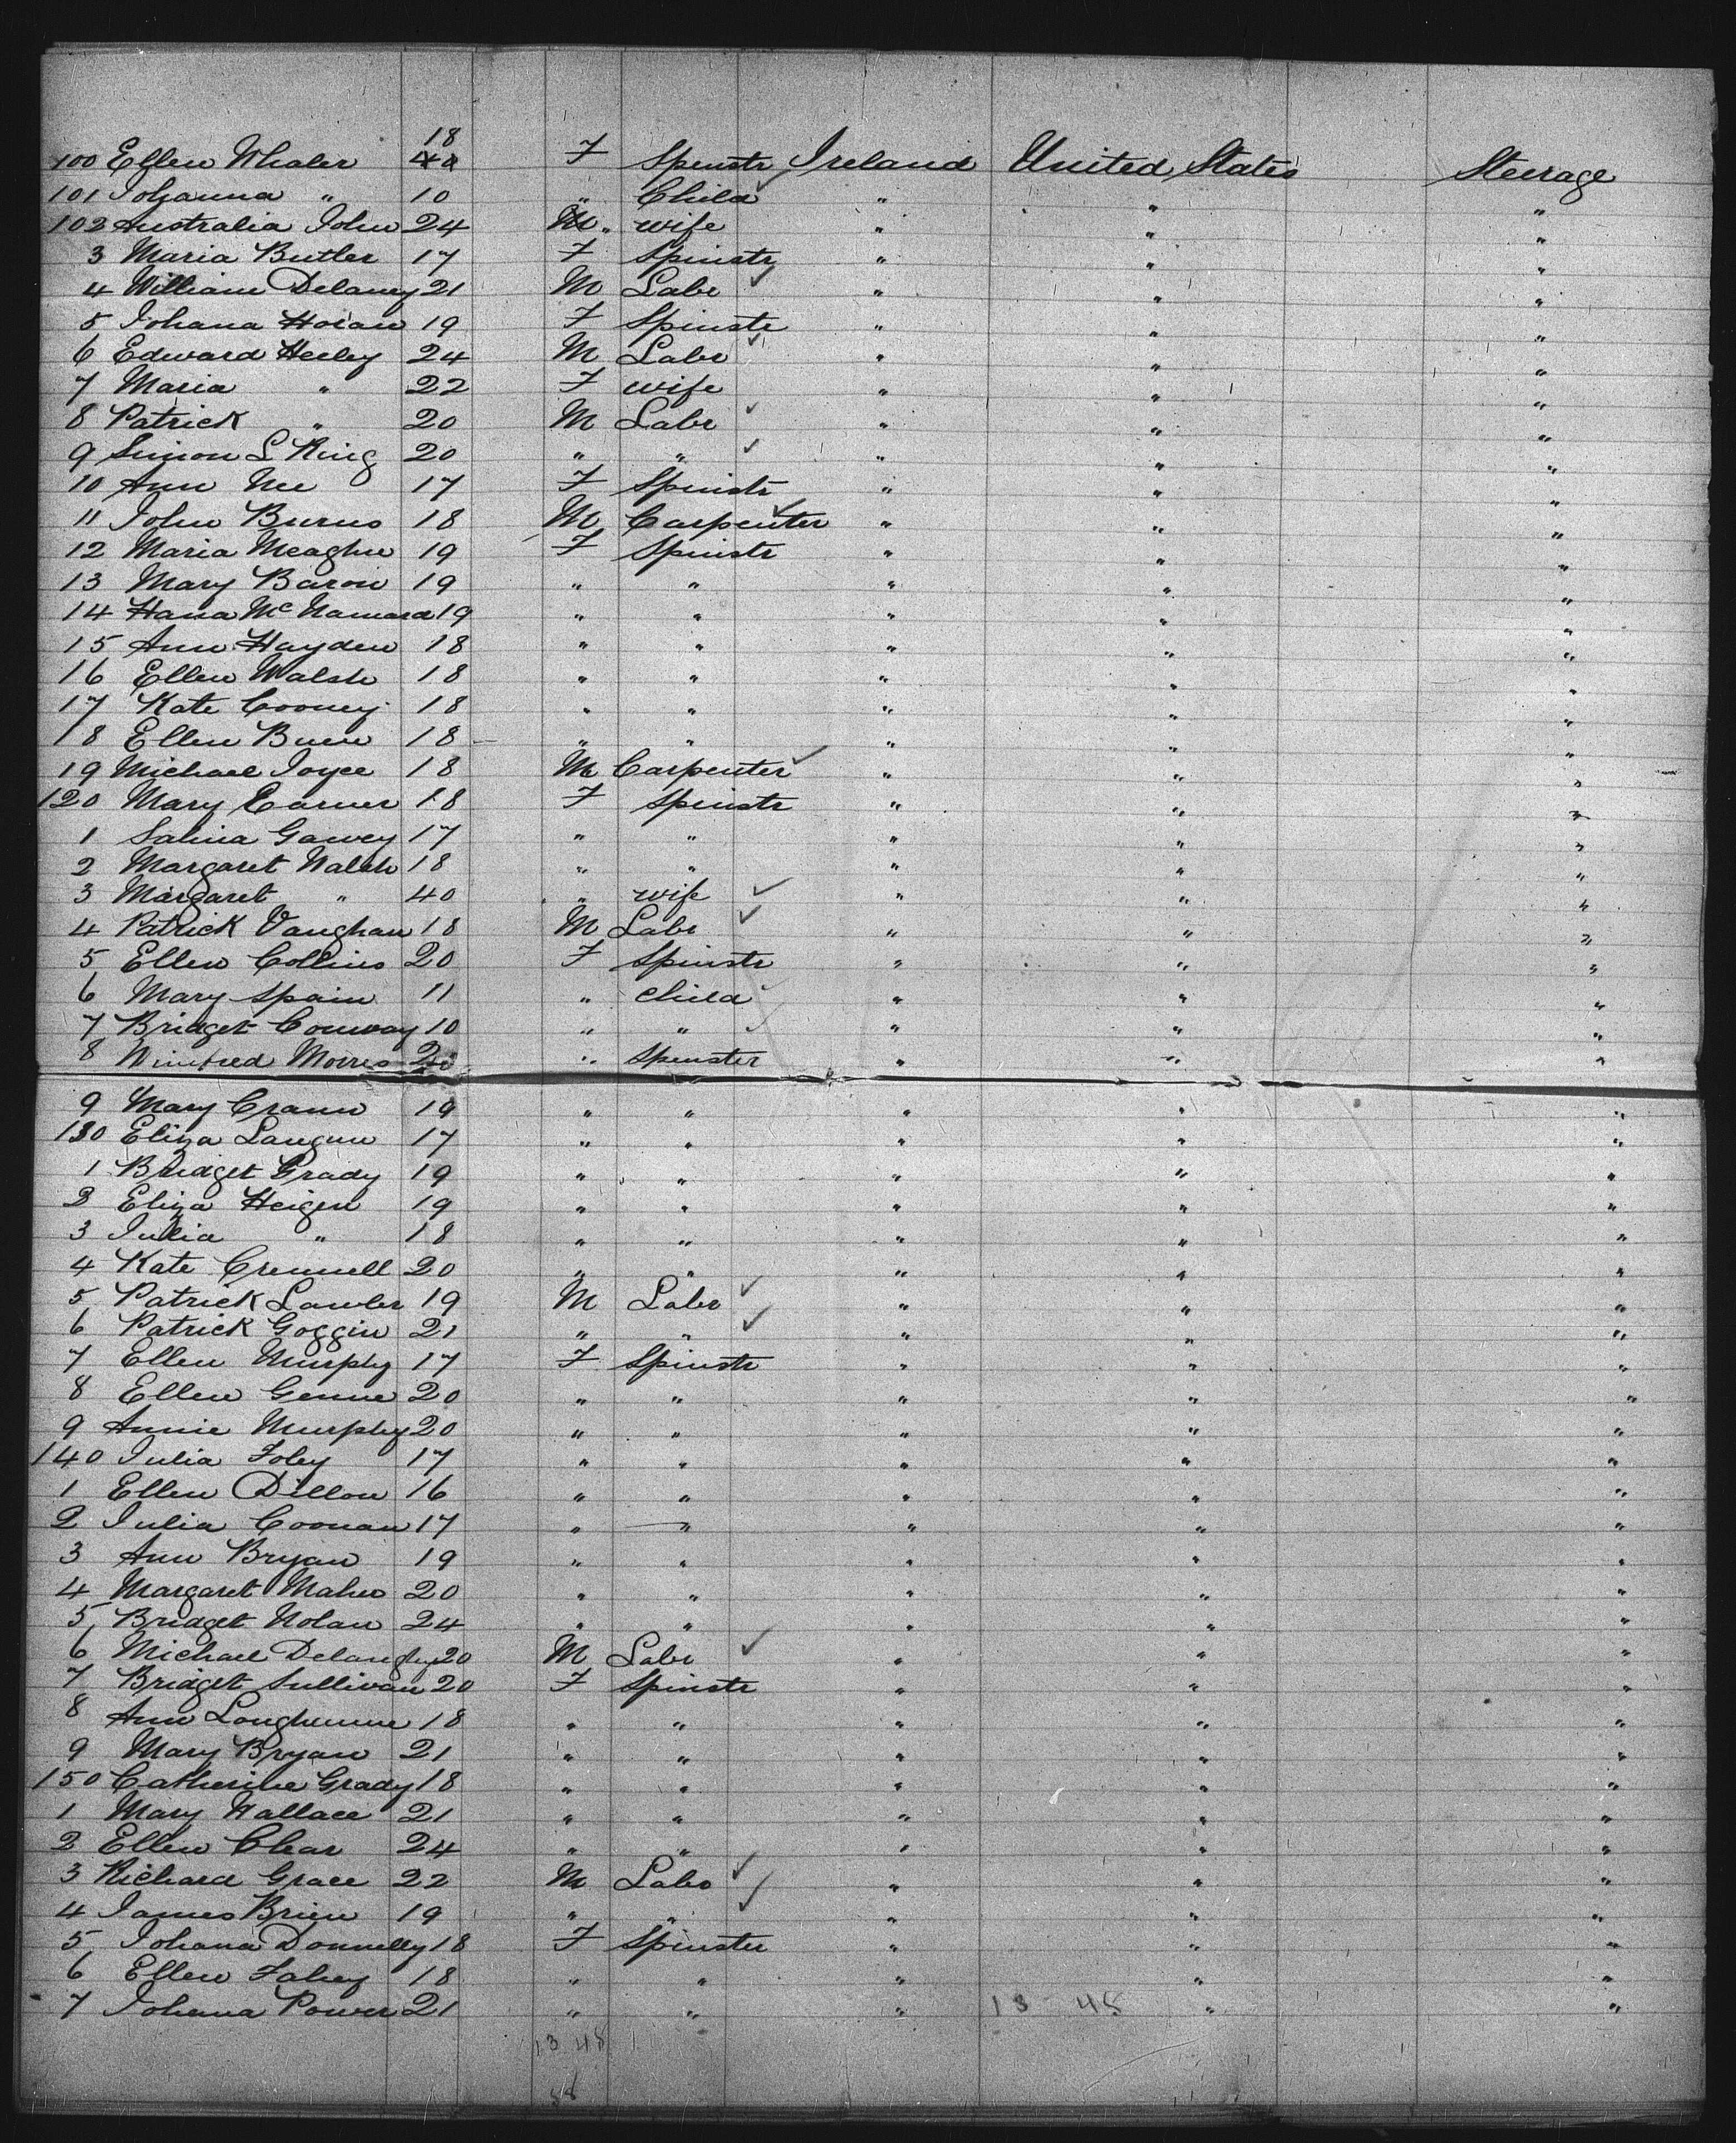 18
100 Ellen Whaler 40 F Spinstr Ireland United States Steerage
101 Johanna " 10 " Child " " "
102 Australia John 24 " wife " " "
3 Maria Butler 17 F Spinstr " " "
4 William Delaney 21 M Labr " " "
5 Johana Horan 19 F Spinstr " " "
6 Edward Heeley 24 M Labr " " "
7 Maria " 22 F wife " " "
8 Patrick " 20 M Labr " " "
9 Simon L King 20 " " " " "
10 Ann Nee 17 F Spinstr " " "
11 John Burns 18 M Carpenter " " "
12 Maria Meagher 19 F Spinstr " " "
13 Mary Baron 19 " " " " "
14 Hana McNamara 19 " " " " "
15 Ann Hayden 18 " " " " "
16 Ellen Walsh 18 " " " " "
17 Kate Cooney 18 " " " " "
18 Ellen 18 " " " " "
19 Michael Joyce 18 M Carpenter " " "
120 Mary 18 F Spinstr " " "
1 Gawey 17 " " " " "
2 Margaret Walsh 18 " " " " "
3 Margaret " 40 " wife " " "
4 Patrick Vaughan 18 M Labr " " "
5 Ellen Collins 20 F Spinstr " " "
6 Mary Spain 11 " Child " " "
7 Bridget Conway 10 " " " " "
8 Winifred Morris " Spinster " " "
9 Mary Crann 19 " " " " "
130 Eliza 17 " " " " "
1 Bridget Grady 19 " " " " "
2 Eliza Heigen 19 " " " " "
3 Julia " 18 " " " " "
4 Kate Crennell 20 " " " " "
5 Patrick Lawler 19 M Labr " " "
6 Patrick Goggin 21 " " " " "
7 Ellen Murphy 17 F Spinstr " " "
8 Ellen 20 " " " " "
9 Annie Murphy 20 " " " " "
140 Julia Foley 17 " " " " "
1 Ellen Dillon 16 " " " " "
2 Julia Coonan 17 " " " " "
3 Ann Bryan 19 " " " " "
4 Margaret Maher 20 " " " " "
5 Bridget Nolan 24 " " " " "
6 Michael 20 M Labr " " "
7 Bridget Sullivan 20 F Spinstr " " "
8 Ann 18 " " " " "
9 Mary Bryan 21 " " " " "
150 Catherine Grady 18 " " " " "
1 Mary Wallace 21 " " " " "
2 Ellen Clear 24 " " " " "
3 Richard Grace 22 M Labr " " "
4 James Brien 19 " " " " "
5 Johana Donnelly 18 F Spinster " " "
6 Ellen Fahey 18 " " " " "
7 Johana Power 21 " " " 13 45 " "
13 45